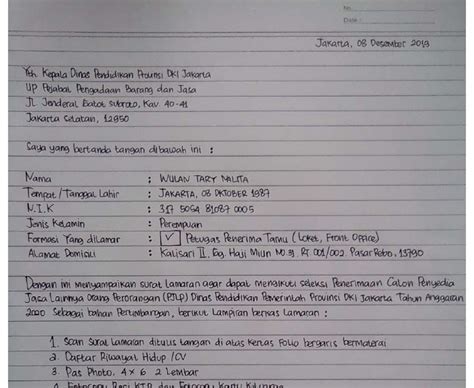 No.
Date :
Jakarta, 08 Desember 2019
Yth. Kepala Dinas Pendidikan Provinsi DKI Jakarta
UP Pejabat Pengadaan Barang dan Jasa
Jl. Jenderal Gatot Subroto, Kav. 40-41
Jakarta Selatan, 12950
Saya yang bertanda tangan dibawah ini :
Nama : WULAN TARY MALITA
Tempat / Tanggal Lahir : JAKARTA, 08 OKTOBER 1987
N.I.K : 317 5054 81087 0005
Jenis Kelamin : Perempuan
Formasi Yang diLamar : ✓ Petugas Penerima Tamu (Loket, Front Office)
Alamat Domisili : Kalisari II, Gg. Haji Miun No 31, RT. 001/002. Pasar Rebo, 13790
Dengan ini menyampaikan surat lamaran agar dapat mengikuti seleksi Penerimaan Calon Penyedia
Jasa Lainnya Orang Perorangan (PJLP) Dinas Pendidikan Pemerintah Provinsi DKI Jakarta Tahun Anggaran
2020 Sebagai bahan Pertimbangan, berikut Lampiran berkas Lamaran :
1. Scan Surat Lamaran ditulis tangan di atas kertas Folio bergaris bermaterai
2. Daftar Riwayat Hidup /CV
3. Pas Photo, 4 x 6 2 Lembar